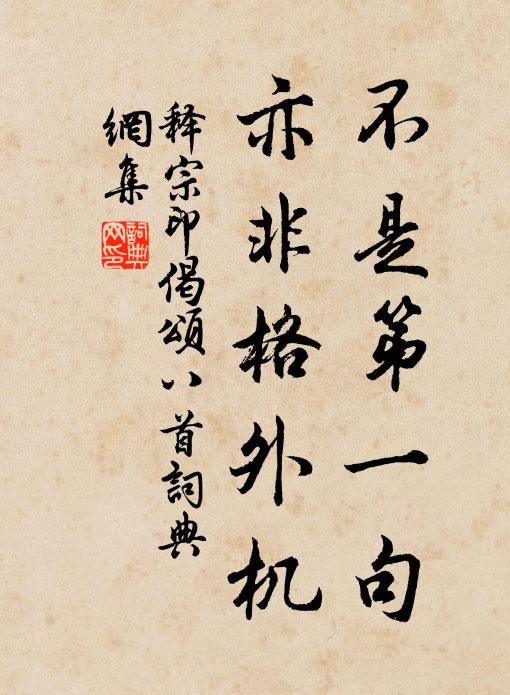 不是第一句
亦非格外机
释宗印偈颂八首詞典
網集
詞典
网印